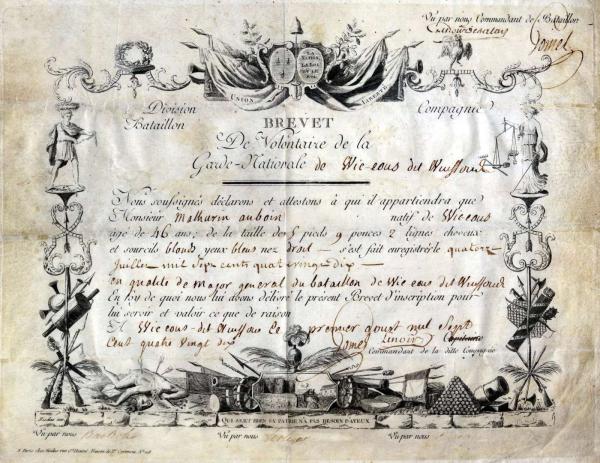 Vu par nous Commandant de Bataillon
LA NATION, LA LOI ET LE ROI.
UNION LIBERTÉ
Division Compagnie
Bataillon
BREVET
De Volontaire de la
Garde-Nationale de Vic-eous dit
Nous soussignés déclarons et attestons à qui il appartiendra que
Monsieur Mathurin auboin natif de Viceous
âgé de 46 ans; de la taille de 5 pieds 9 pouces 2 lignes cheveux
et sourcils blonds yeux bleus nez droit — s'est fait enregistrer le quatorze
Juillet mil Sept cents quatrevingt dix —
en qualité de major general du bataillon de Vic-eous dit
En foy de quoi nous lui avons délivré le présent Brevet d'inscription pour
lui servir et valoir ce que de raison
A Vic-eous-dit le premier aoust mil Sept
Cent quatre vingt dix
Lenoir Capitaine
Commandant de la ditte Compagnie
QUI SERT BIEN SA PATRIE N'A PAS BESOIN D'AYEUX
Vu par nous Vu par nous Vu par nous
A Paris chez